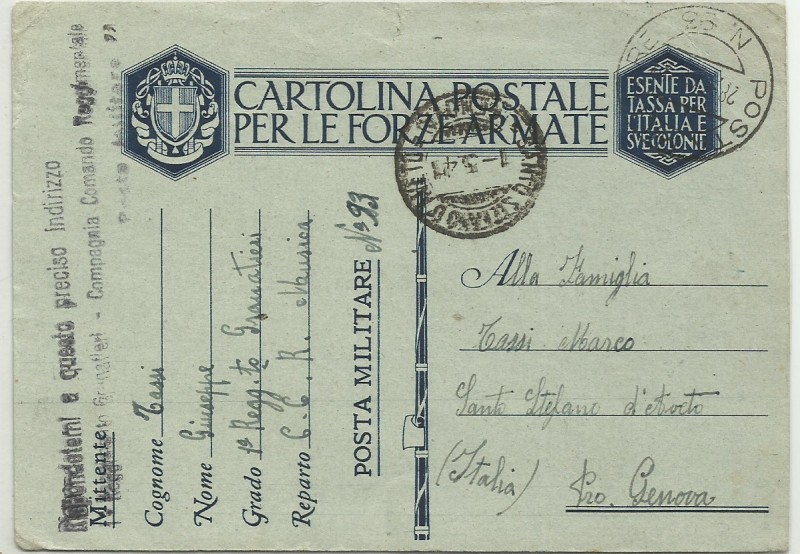 CARTOLINA POSTALE
PER LE FORZE ARMATE
ESENTE DA
TASSA PER
L'ITALIA E
SVE COLONIE
POST RE N. 93
28
SANTO STEFANO D'AVETO
1-5-41
Rispondetemi a questo preciso indirizzo
Granatieri - Compagnia Comando Reggimentale
Posta Militare 93
Mittente
Cognome Tassi
Nome Giuseppe
Grado 1º Regg.to Granatieri
Reparto C. C. R. Musica
POSTA MILITARE Nº 93
Alla Famiglia
Tassi Marco
Santo Stefano d'Aveto
(Italia) Pro. Genova